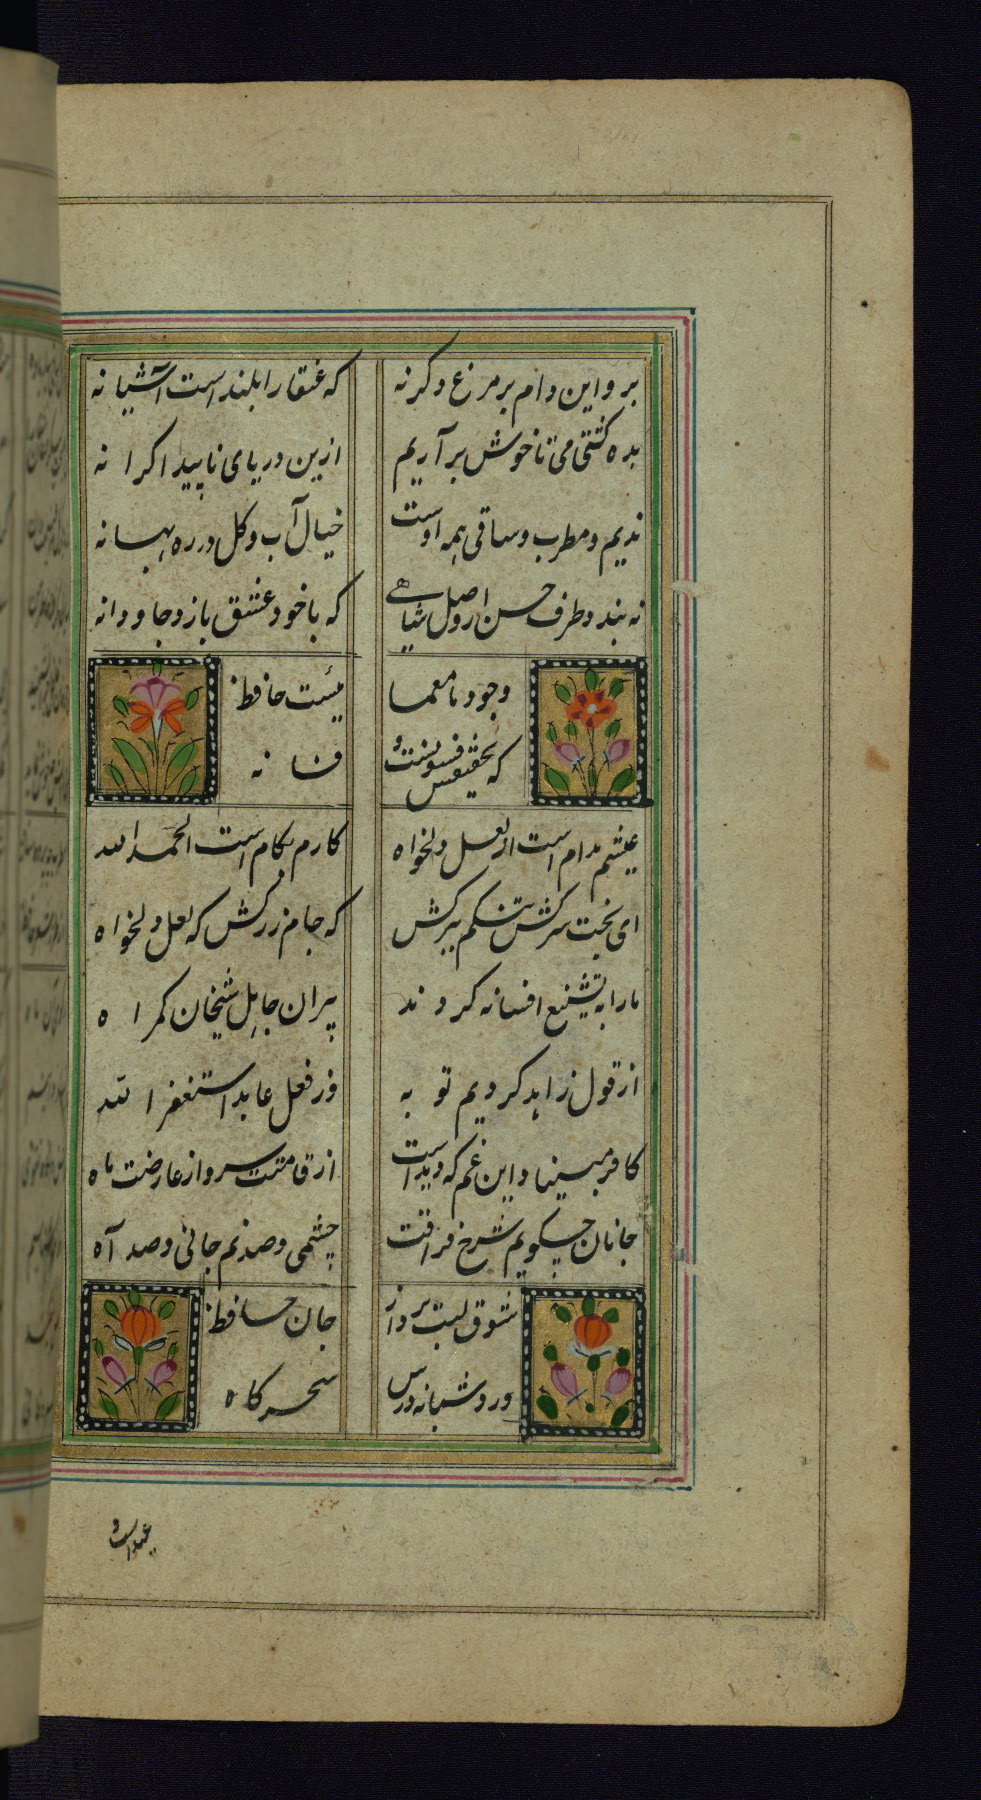 برو این دام بر مرغ دگر نه
که عنقا را بلند است آشیانه
بده کشتی می تا خوش برآریم
ازین دریای ناپیدا کرانه
ندیم و مطرب و ساقی همه اوست
خیال آب و گل در ره بهانه
نه بندد طرف حسن از وصل شاهی
که با خود عشق بازد جاودانه
وجود ما معما
ئیست حافظ
که تحقیقش فسونست و
فسانه
عیشم مدام است از لعل دلخواه
کارم بکام است الحمد لله
ای بخت سرکش تنگم ببر کش
که جام زر کش که لعل دلخواه
ما را به تشنیع افسانه کردند
پیران جاهل شیخان گمراه
از قول زاهد کردیم توبه
وز فعل عابد استغفر الله
کافر مبیناد این غم که دیدست
از قامتت سرو از عارضت ماه
جانان چگویم شرح فراقت
چشمی و صد نم جانی و صد آه
شوق لبت برد از
جان حافظ
ورد شبانه درس
سحرگاه
عیداست و